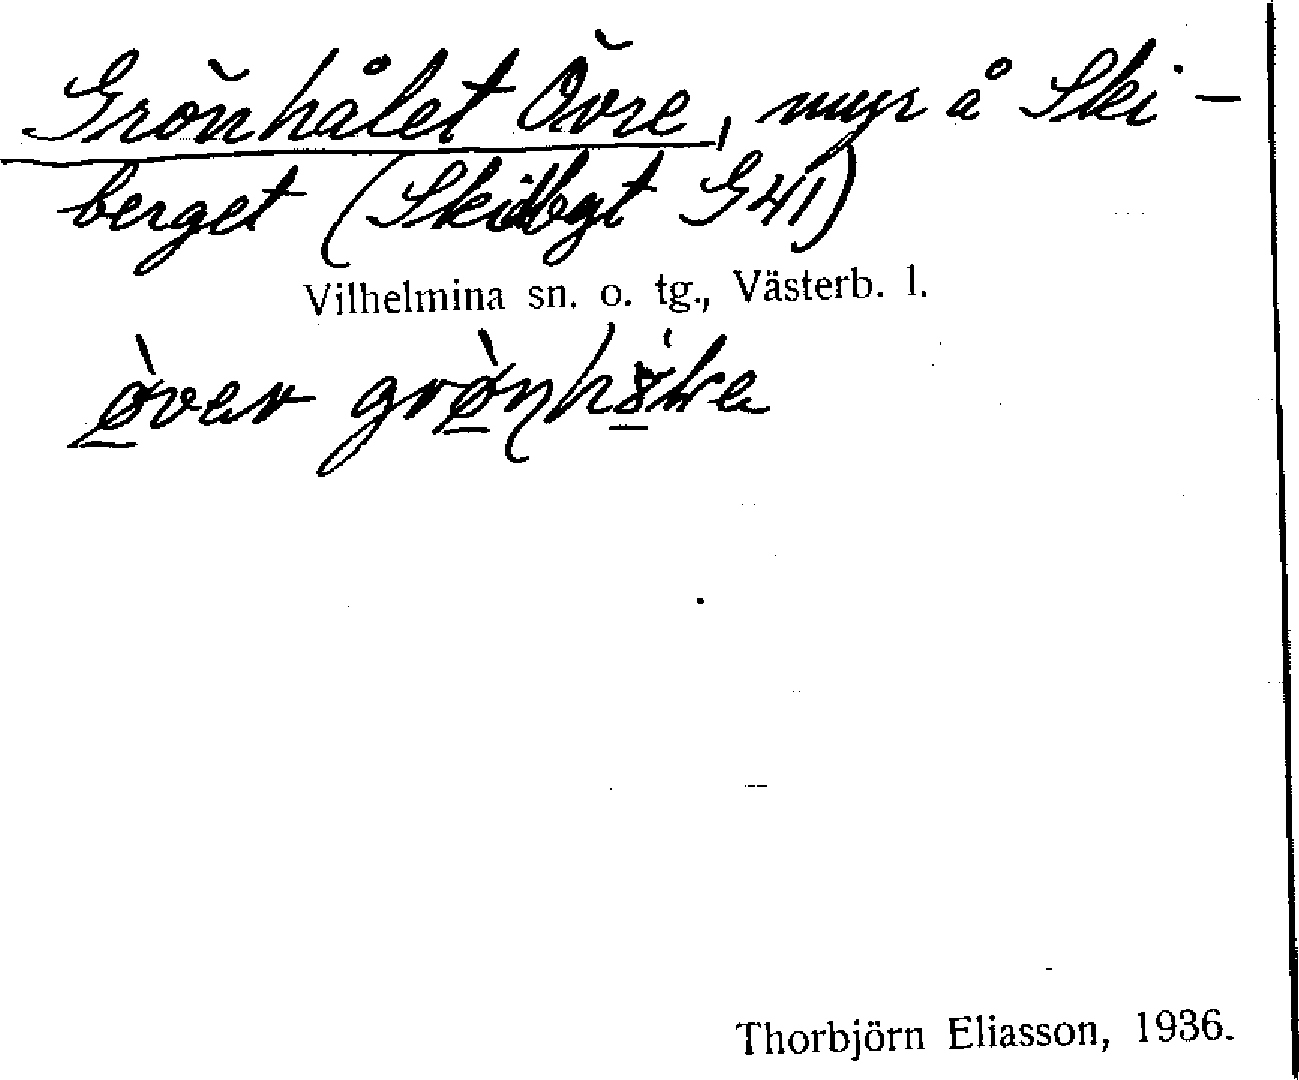 Grönhålet Övre, myr å Ski-
berget (Skidbgt G 41)
Vilhelmina sn. o. tg., Västerb. l.
øver
Thorbjörn Eliasson, 1936.